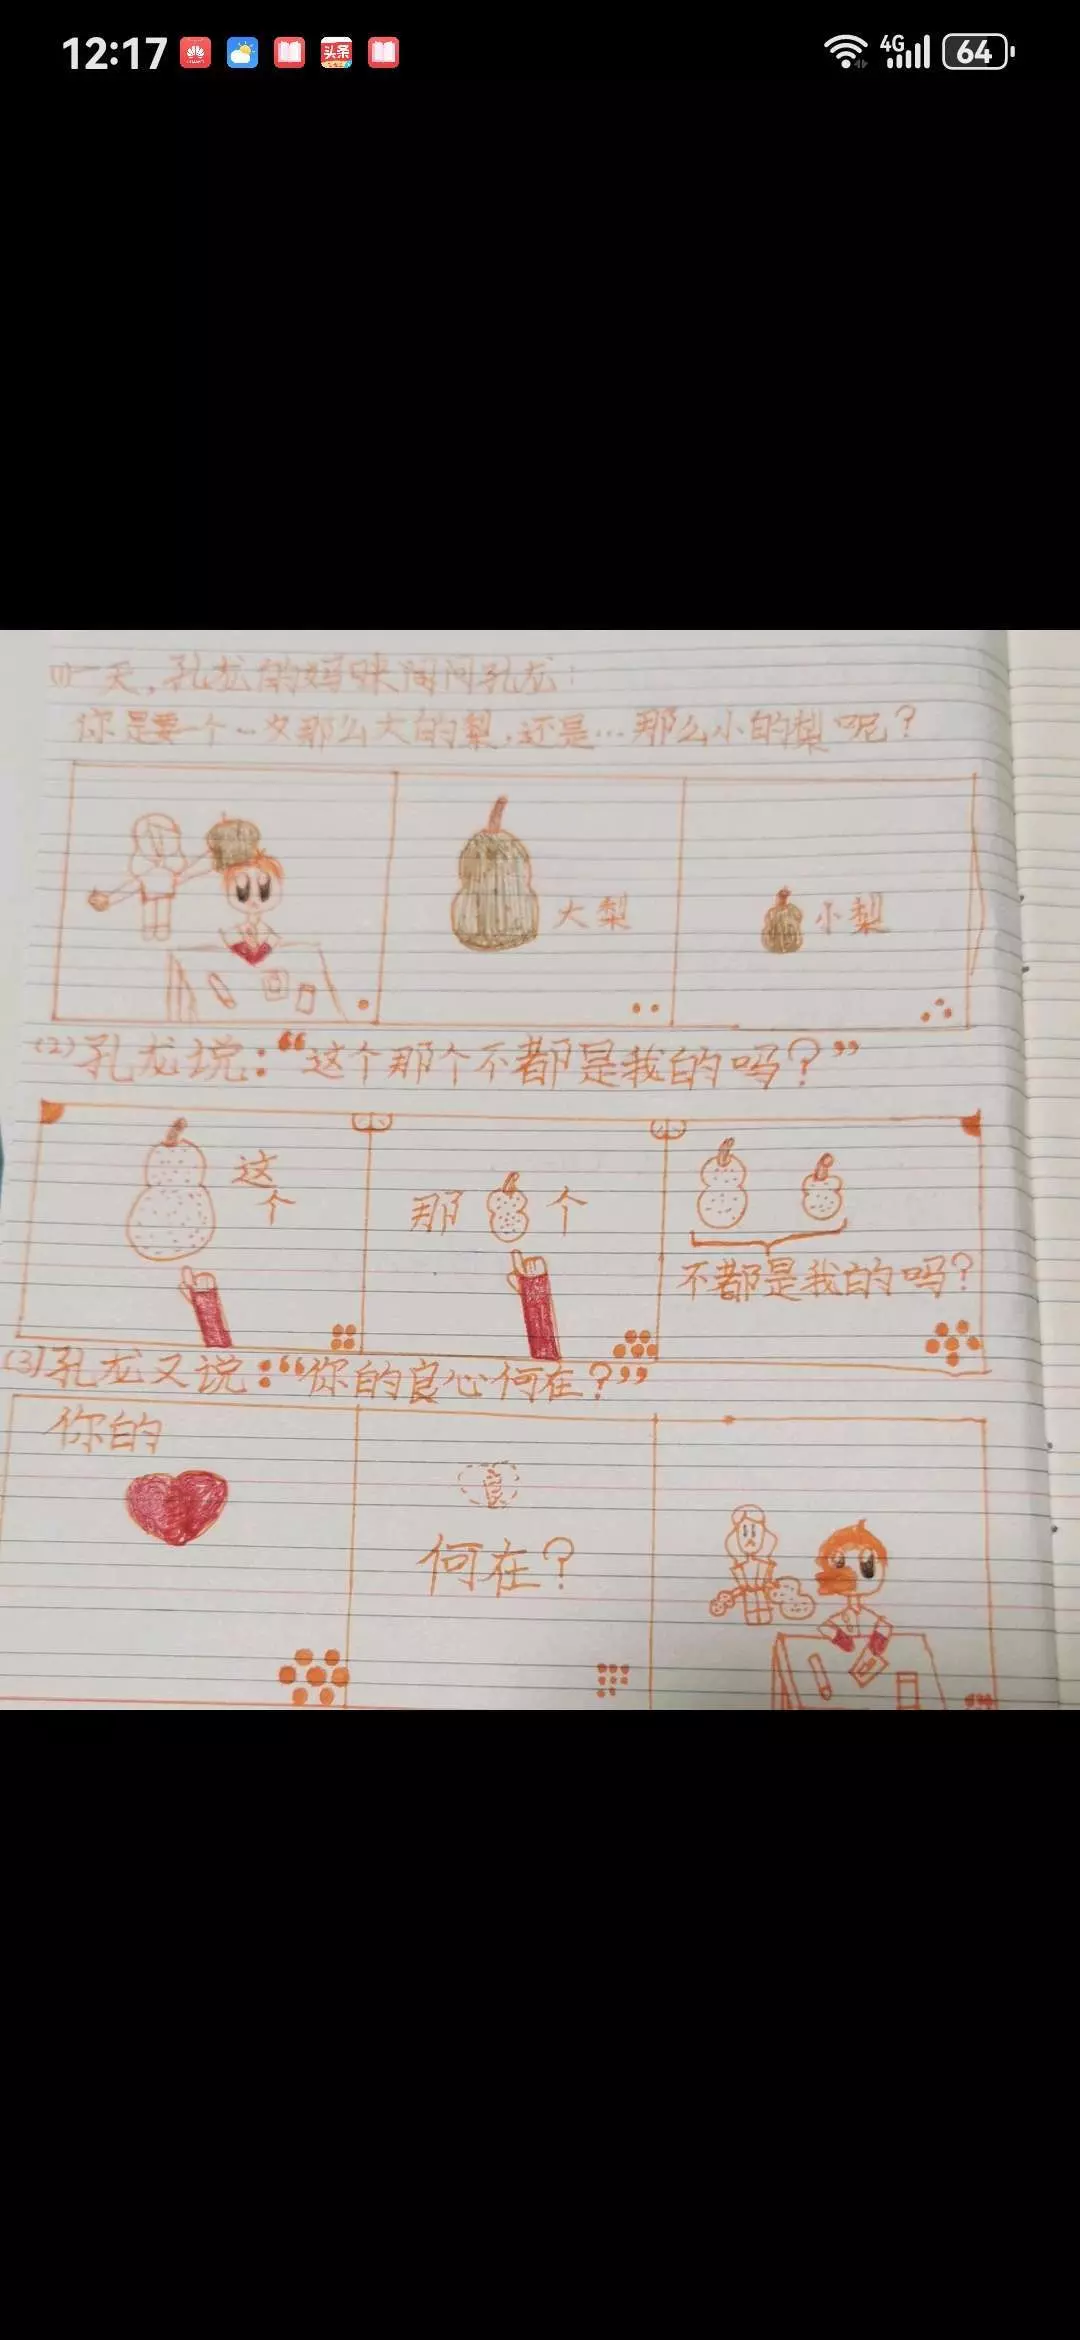 12:17
头条
4G
64
(1)一天,孔龙的妈咪问问孔龙:
你是要一个…那么大的梨,还是…那么小的梨呢?
大梨
小梨
(2)孔龙说:“这个那个不都是我的吗?”
这个
那个
不都是我的吗?
(3)孔龙又说:“你的良心何在?”
你的
良
何在?